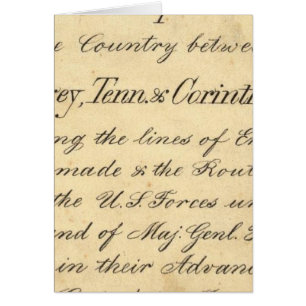 e Country betwe
rey, Tenn. & Corint
ng the lines of E
made & the Rout
the U.S Forces un
nd of Maj. Genl.
in their Advan